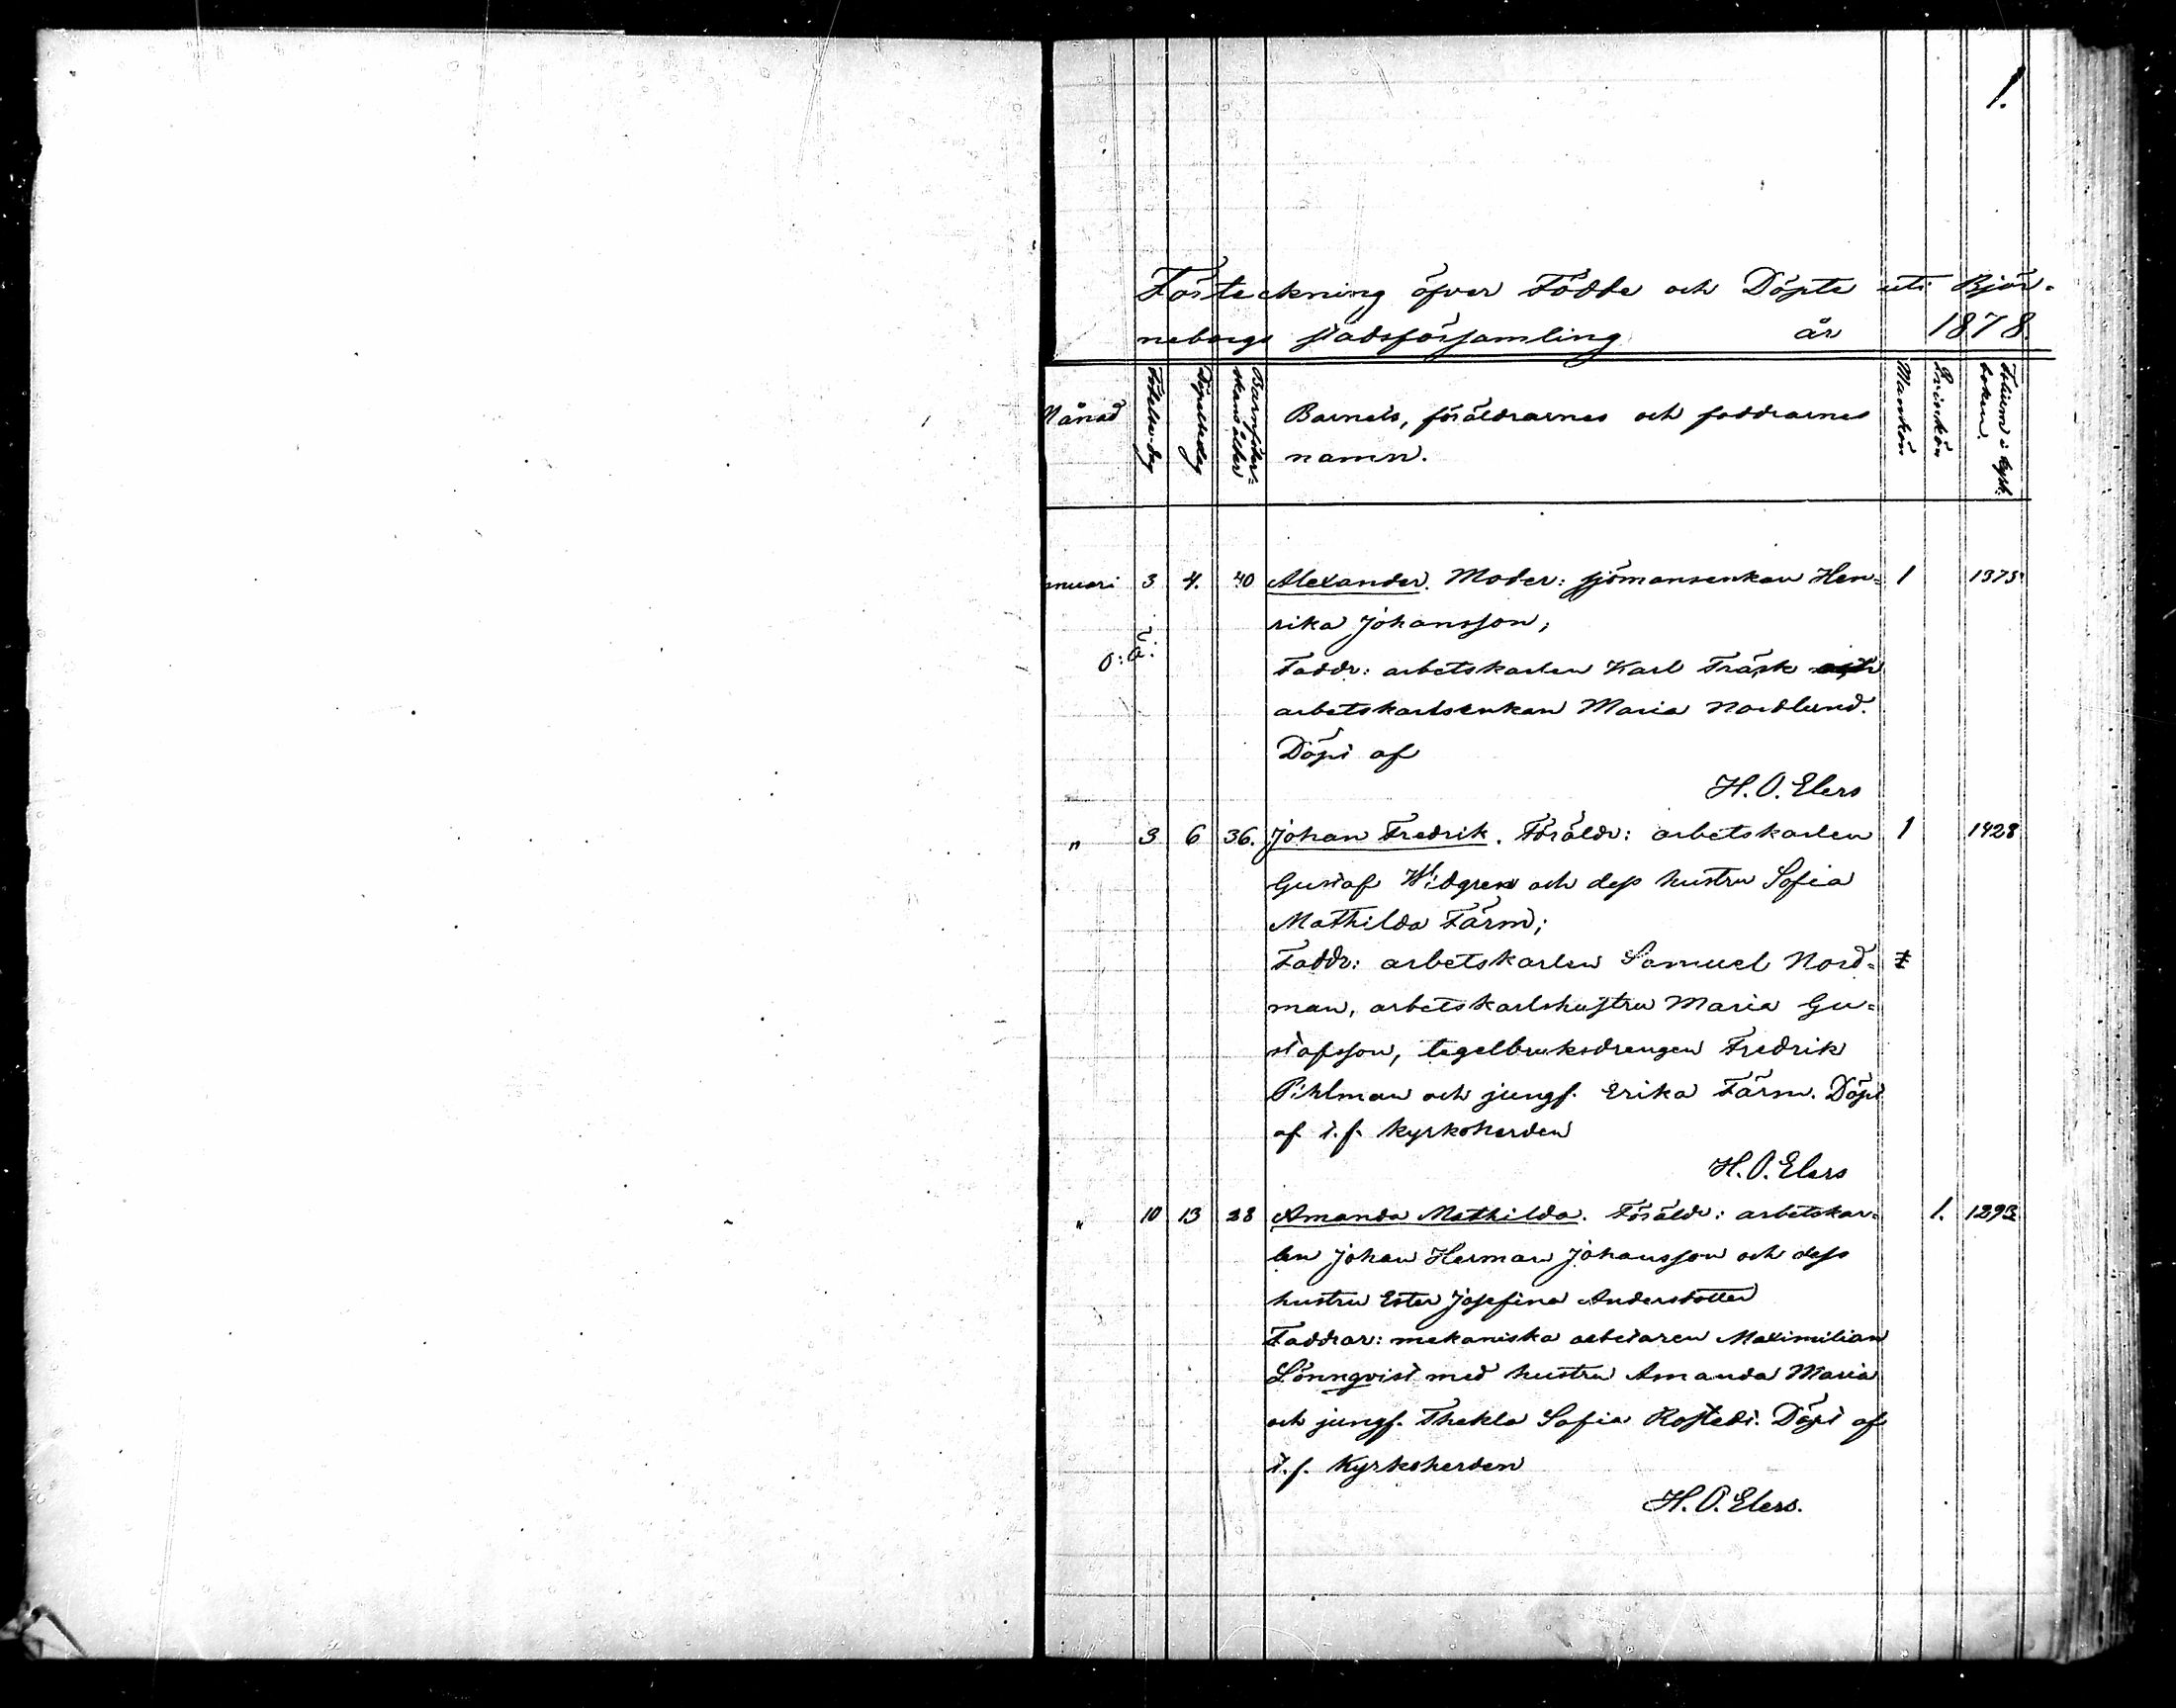 1.
Förteckning öfver Födde och Döpte uti Björ-
neborgs stadsförsamling år 1878.
Månad Födelsedag Döpelsedag Barnföder-
skans ålder Barnets, föräldrarnes och faddrarnes
namn. Mankön Qvinkön Folium i kyrk.
boken.
anuari 3 4. 40 Alexander. Moder: sjömansenkan Hen- 1 1375
rika Johansson;
o:ä: Faddr: arbetskarlen Karl Träsk och
arbetskarlsenkan Maria Nordlund.
Döpt af
H. O. Elers
" 3 6 36. Johan Fredrik. Föräldr: arbetskarlen 1 1428
Gustaf Widgren och dess hustru Sofia
Mathilda Färm;
Faddr: arbetskarlen Samuel Nord-
man, arbetskarlshustru Maria Gu-
stafsson, tegelbruksdrengen Fredrik
Pihlman och jungf. Erika Färm. Döpt
af t.f. kyrkoherden
H. O. Elers
" 10 13 28 Amanda Mathilda. Föräldr: arbetskar- 1. 1293
len Johan Herman Johansson och dess
hustru Ester Josefina Andersdotter
Faddrar: mekaniska arbetaren Maximilian
Lönnqvist med hustru Amanda Maria
och jungf. Thekla Sofia Rostedt. Döpt af
t.f. Kyrkoherden
H. O. Elers.